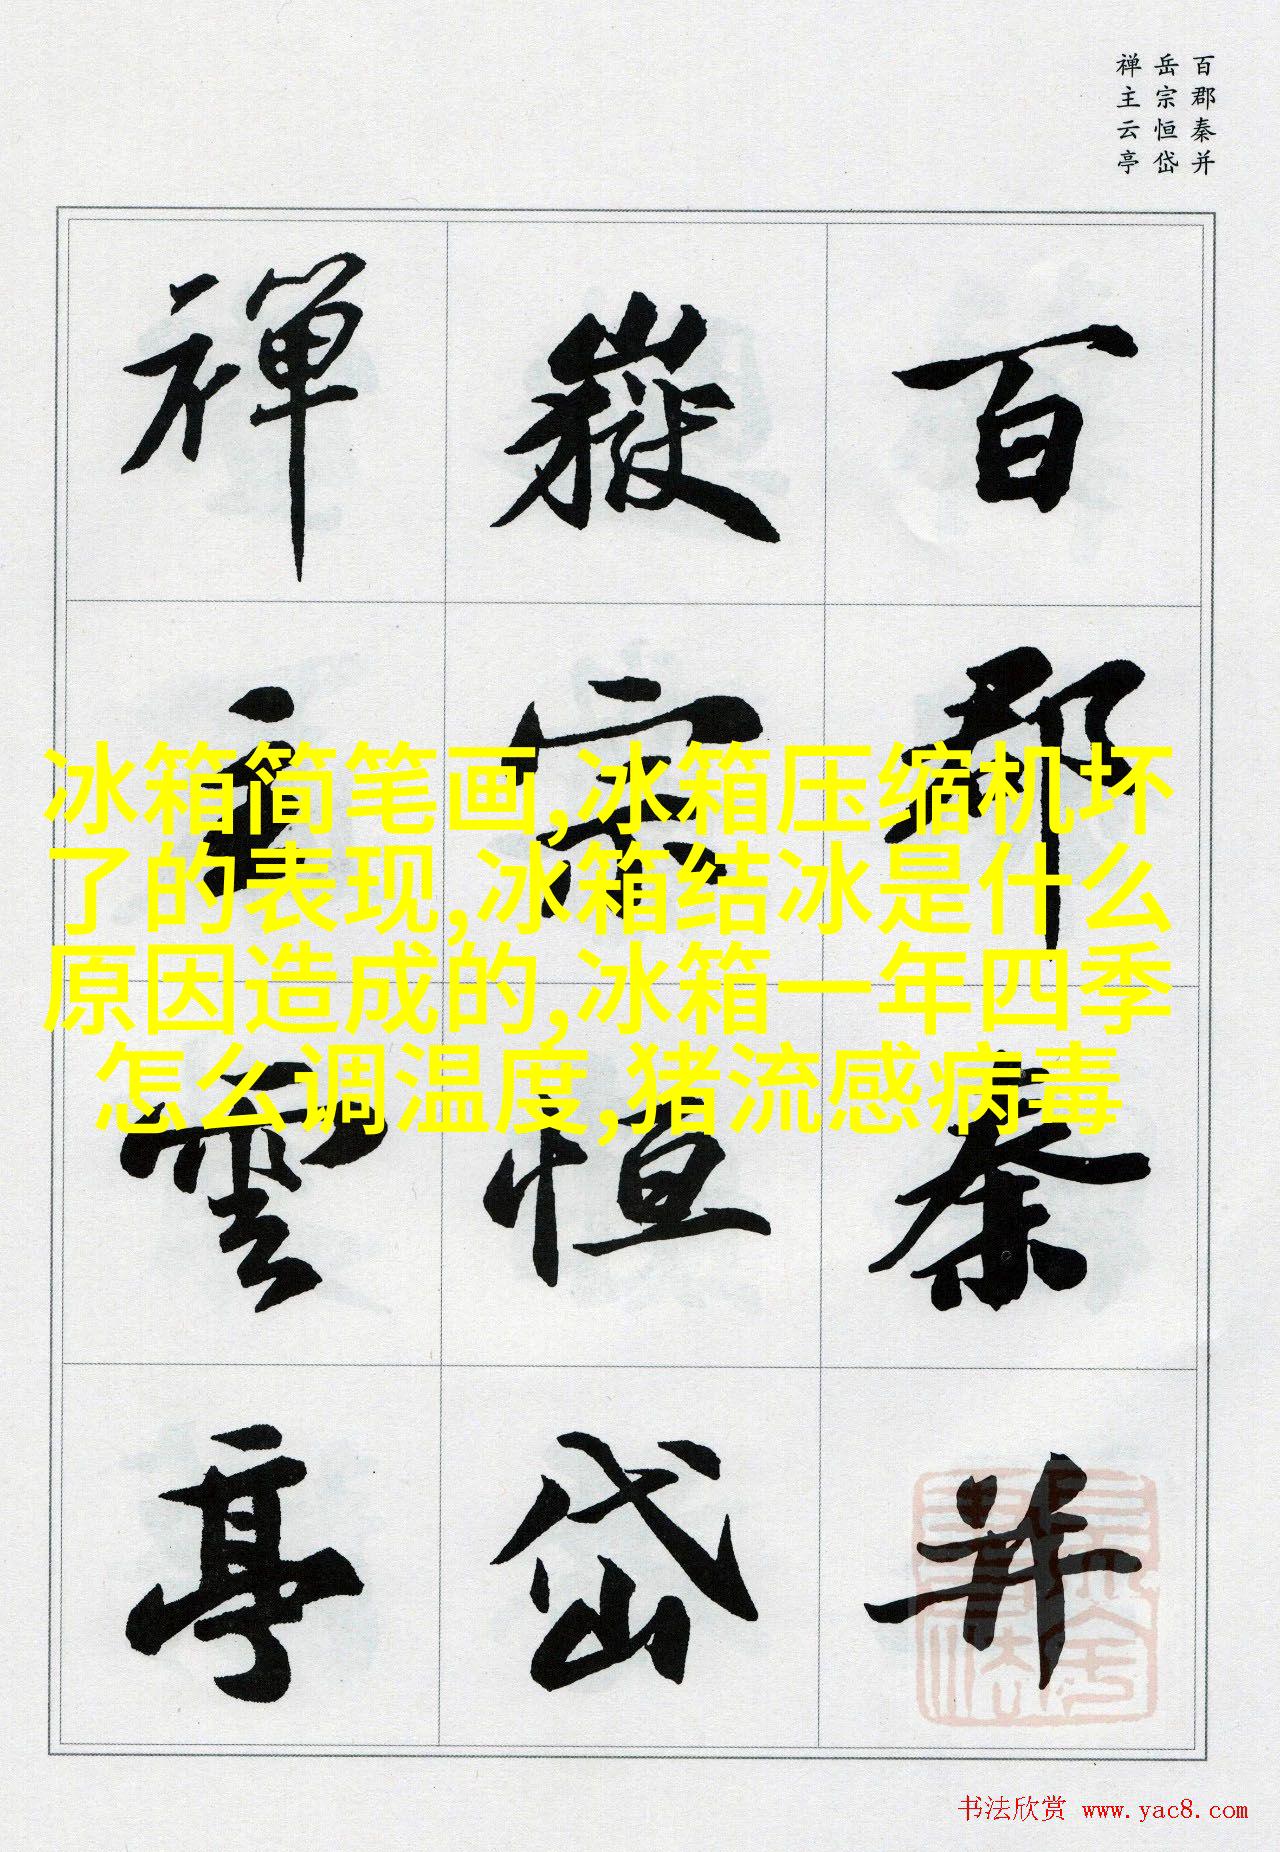 百郡秦并
岳宗恒岱
禅主云亭
百
郡
秦
并
嶽
宗
恒
岱
禅
主
雲
亭
冰箱简笔画,冰箱压缩机坏
了的表现,冰箱结冰是什么
原因造成的,冰箱一年四季
怎么调温度,猪流感病毒
书法欣赏 www.yac8.com